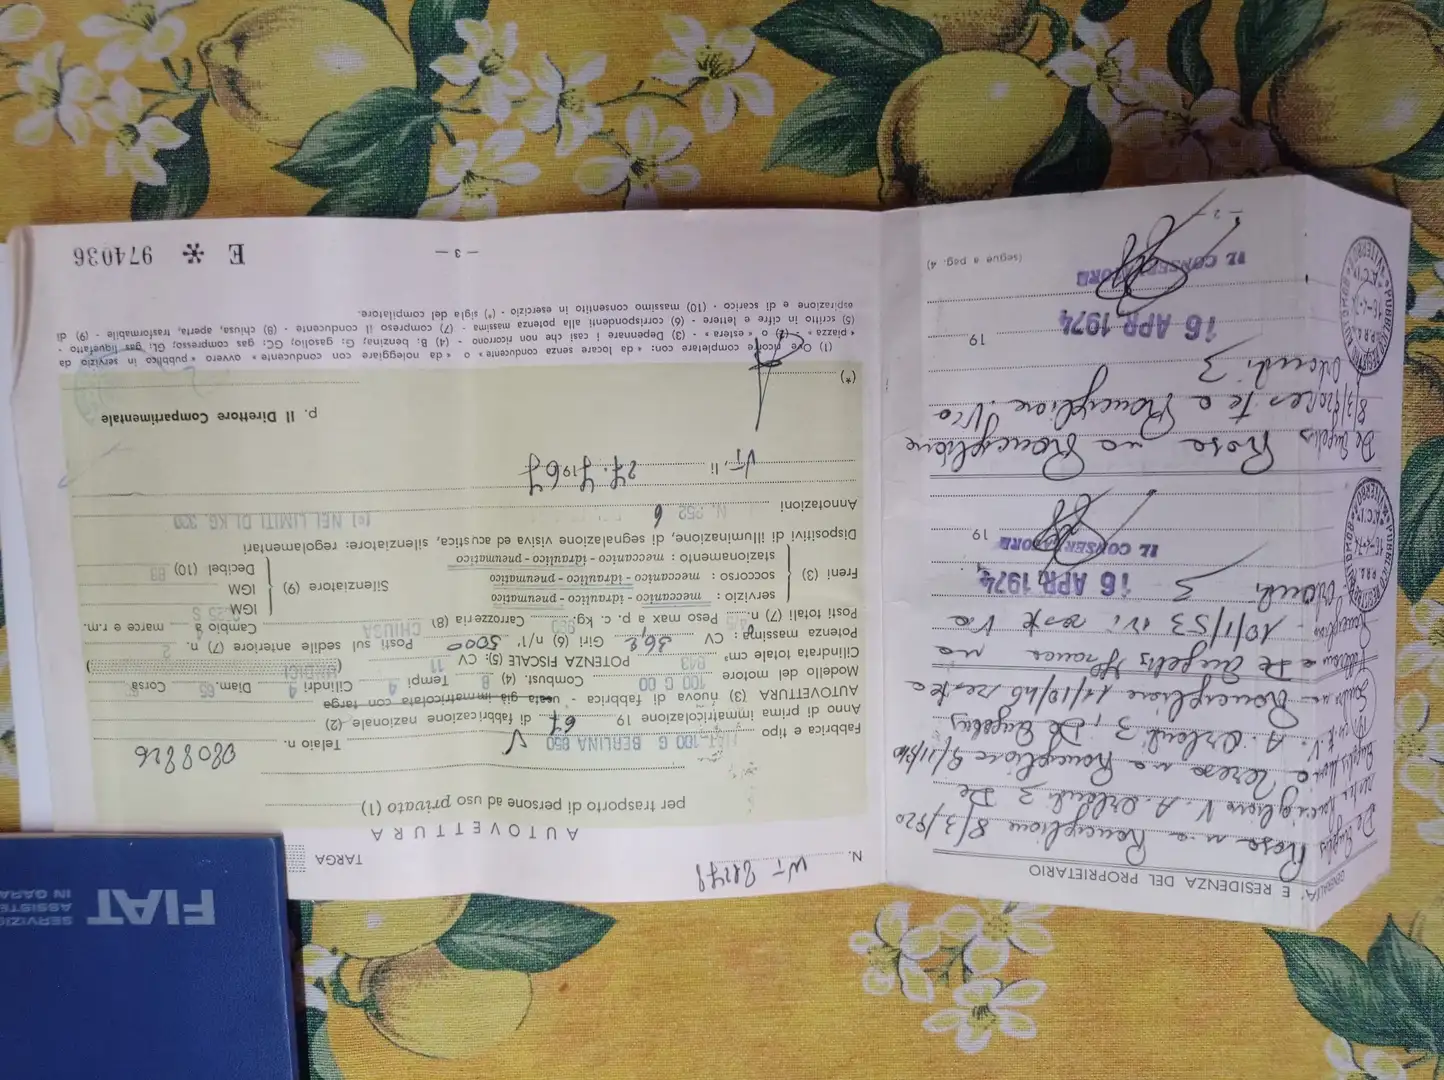 GENERALITA'
E RESIDENZA DEL PROPRIETARIO
De Angelis Rosa n. a Ronciglione 8/3/1920
V. A. Orlandi 3 De
Teresa n. a Ronciglione
V. A. Orlandi 3; De Angelis
n. a Ronciglione 11/10/46 res. te a
De Angelis Franca n. a
Ronciglione 10/1/53 ivi res. te Via
Orlandi 3
16 APR 1974
19
IL CONSERVATORE
De Angelis Rosa n. a Ronciglione
8/3/1920 res. te a Ronciglione Via
Orlandi 3
16 APR 1974
19
IL CONSERVATORE
(segue a pag. 4)
— 2 —
N. VT
TARGA
AUTOVETTURA
per trasporto di persone ad uso privato (1)
Fabbrica e tipo FIAT-100 G BERLINA 850 Telaio n. 0808226
Anno di prima immatricolazione 19 67 di fabbricazione nazionale (2)
AUTOVETTURA (3) nuova di fabbrica - usata già immatricolata con targa
Modello del motore 100 G 00 Combust. (4) B Tempi 4 Cilindri 4 Diam. 65 Corsa
Cilindrata totale cm³ 843 POTENZA FISCALE (5): CV 11 (UNDICI)
Potenza massima: CV 36,2 Giri (6) n/1' 5000 Posti sul sedile anteriore (7) n. 2
Posti totali (7) n. Peso max a p. c. kg: Carrozzeria (8) CHIUSA Cambio a 4 marce e r.m.
Freni (3)
servizio: meccanico - idraulico - pneumatico
soccorso: meccanico - idraulico - pneumatico
stazionamento: meccanico - idraulico - pneumatico
Silenziatore (9)
IGM
IGM
Decibel (10) 83
Dispositivi di illuminazione, di segnalazione visiva ed acustica, silenziatore: regolamentari
Annotazioni N. 952 6 NEI LIMITI DI KG.
VT, li 27. 7 1967
p. Il Direttore Compartimentale
(*)
(1) Ove ricorre completare con: « da locare senza conducente » o « da noleggiare con conducente » ovvero « pubblico in servizio da
piazza » - (2) o « estera » - (3) Depennare i casi che non ricorrono - (4) B: benzina; G: gasolio; GC: gas compresso; GL: gas liquefatto -
(5) scritto in cifre e lettere - (6) corrispondenti alla potenza massima - (7) compreso il conducente - (8) chiusa, aperta, trasformabile - (9) di
aspirazione e di scarico - (10) massimo consentito in esercizio - (*) sigla del compilatore.
— 3 —
E * 974036
FIAT
SERVIZIO
ASSISTE
IN GARA